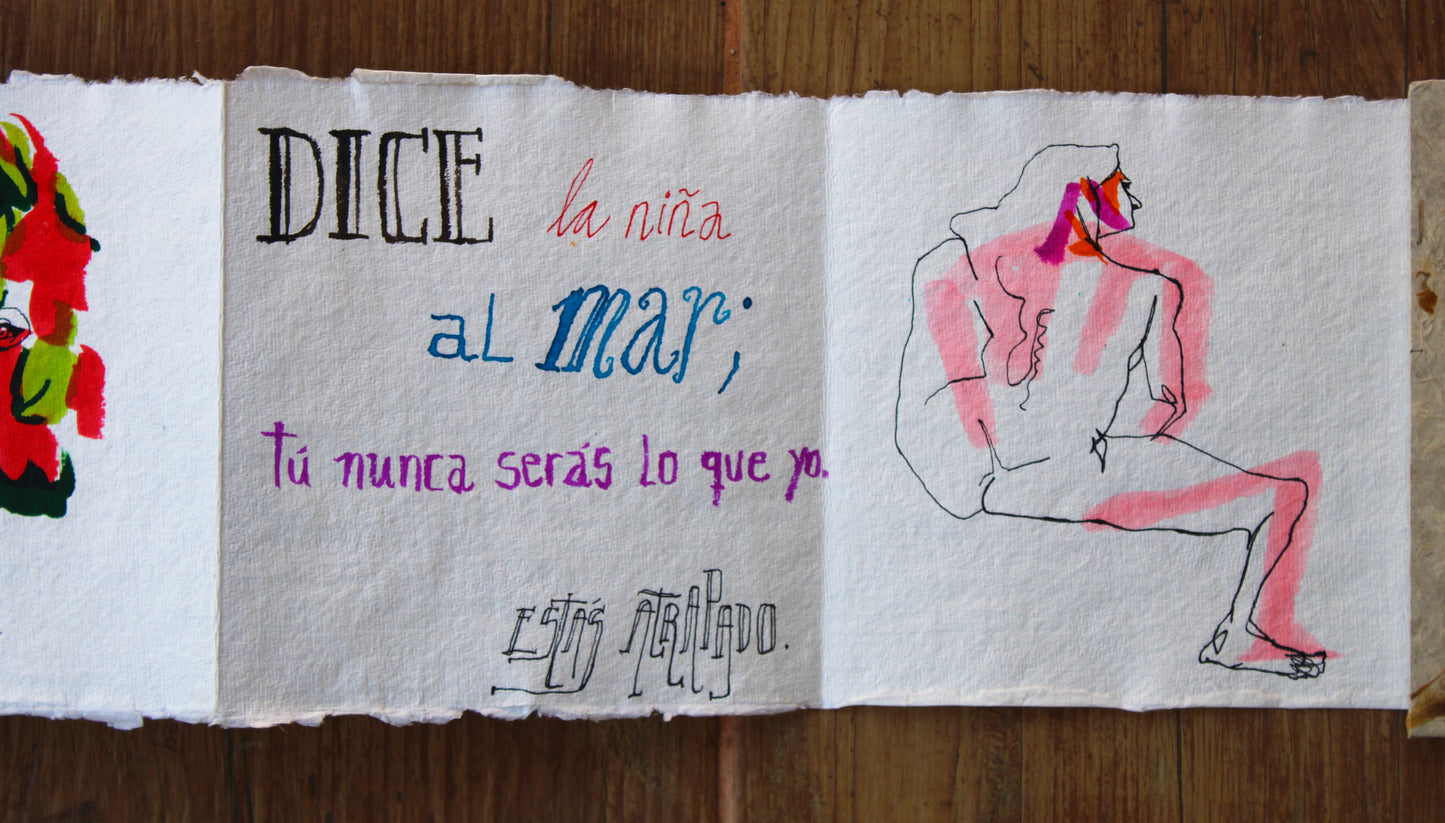 DICE la niña
al mar;
tú nunca serás lo que yo.
ESTÁS ATRAPADO.